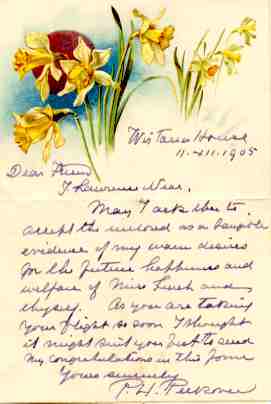 Wistaria House
11-XII-1905
Dear Friend
J Lawrence
May I ask thee to
accept the enclosed as a tangible
evidence of my warm desires
for the future happiness and
welfare of Miss and
thyself. As you are taking
your flight so soon I thought
it might suit you best to send
my congratulations in this form
Yours sincerely
P. H. Peckover